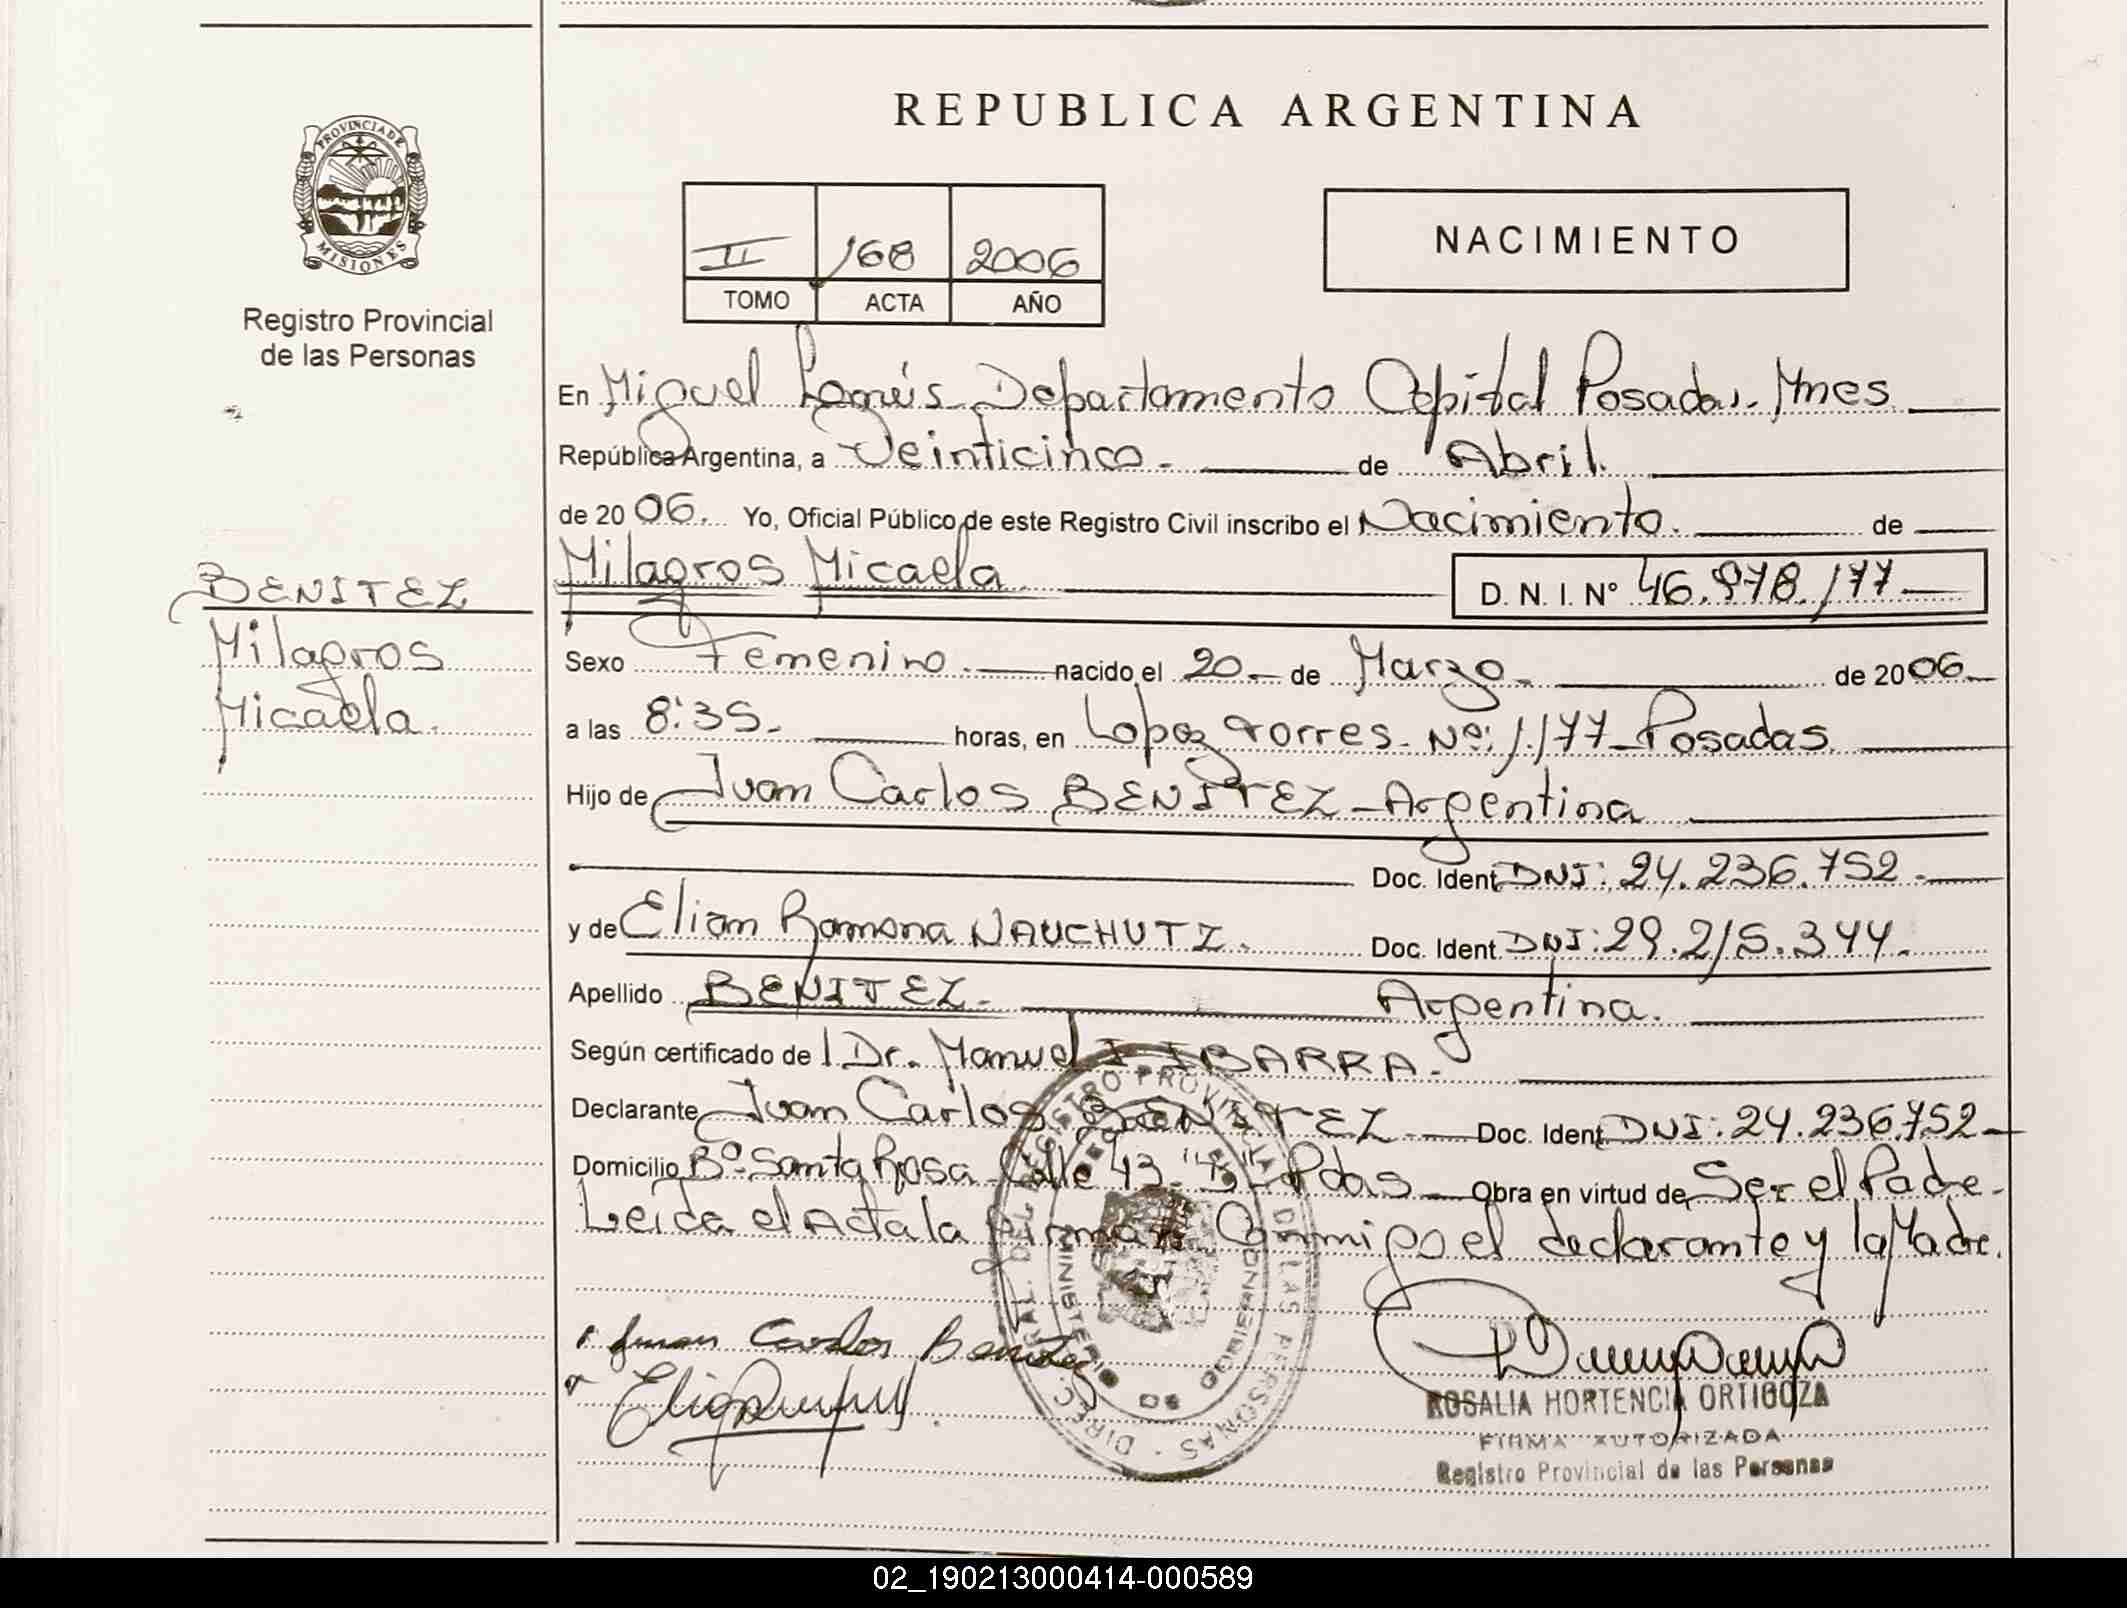 REPUBLICA ARGENTINA
PROVINCIA DE
MISIONES
Registro Provincial
de las Personas
II 168 2006
TOMO ACTA AÑO
NACIMIENTO
En Miguel Lanús Departamento Capital Posadas - Mnes
República Argentina, a Veinticinco - de Abril.
de 20 06. Yo, Oficial Público de este Registro Civil inscribo el Nacimiento. de
BENITEZ
Milagros
Micaela.
Milagros Micaela D. N. I. Nº 46.978.177
Sexo Femenino. nacido el 20 - de Marzo - de 20 06 -
a las 8:35 - horas, en Lopez Torres - Nº: 1.177 - Posadas
Hijo de Juan Carlos BENITEZ - Argentina
Doc. Ident DNI: 24.236.752 -
y de Elian Ramona NAUCHUTZ. Doc. Ident. DNI: 29.215.344 -
Apellido BENITEZ - Argentina.
Según certificado de l Dr. Manuel I IBARRA -
Declarante Juan Carlos BENITEZ - Doc. Ident DNI: 24.236.752 -
Domicilio Bº Santa Rosa Calle 43 - Pdas Obra en virtud de Ser el Padre -
Leida el Acta la firman Conmigo el declarante y la Madre.
Juan Carlos Benitez
DIREC. GRAL. DEL REGISTRO PROVINCIAL DE LAS PERSONAS
MINISTERIO DE GOBIERNO
ROSALIA HORTENCIA ORTIGOZA
FIRMA AUTORIZADA
Registro Provincial de las Personas
02_190213000414-000589